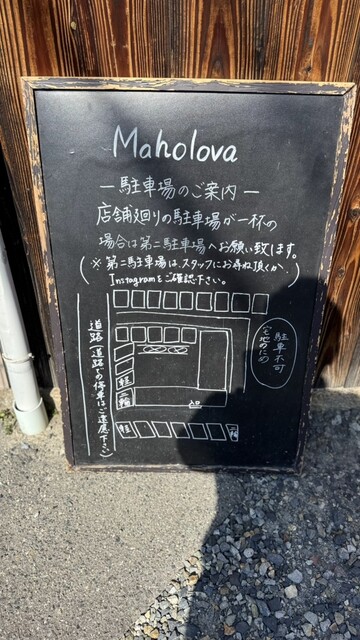 Maholova
ー駐車場のご案内ー
店舗廻りの駐車場が一杯の
場合は第二駐車場へお願い致します。
(※第二駐車場は、スタッフにお尋ね頂くか、
Instagramをご確認下さい。)
道路(道路での停車はご遠慮下さい)
軽
二輪
入口
軽
二輪
駐車不可